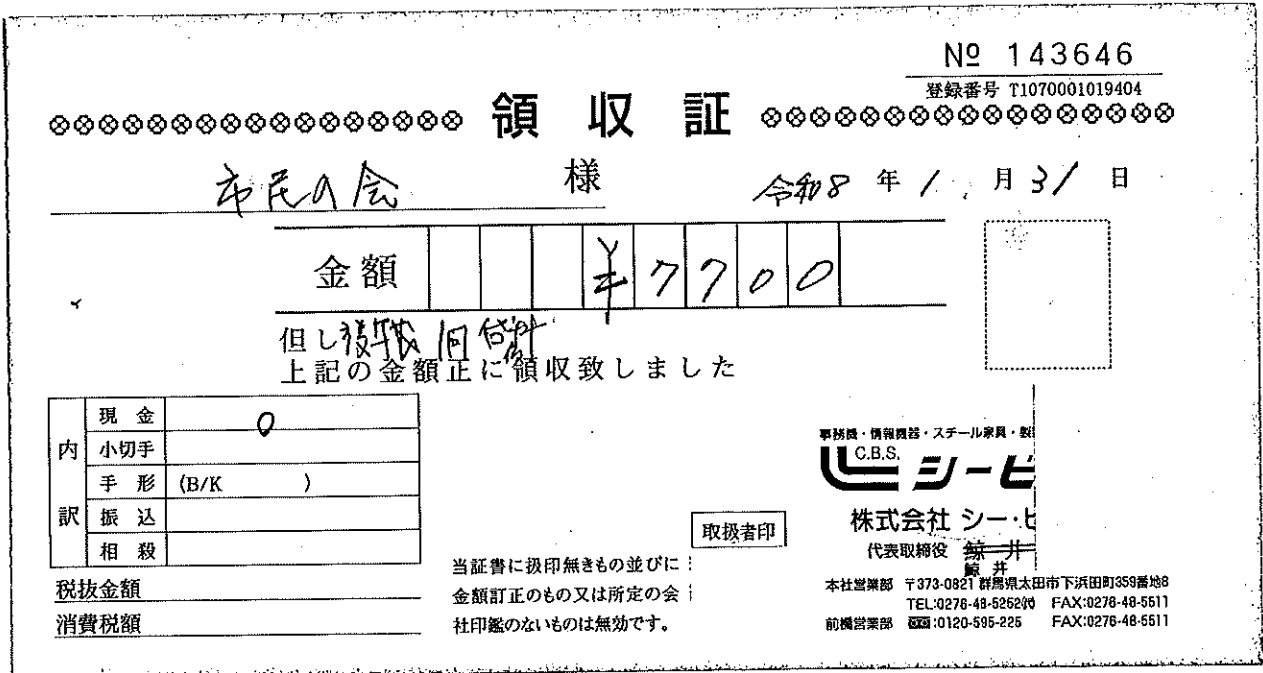 № 143646
登録番号 T1070001019404
領収証
市民の会 様 令和8年1月31日
金額 ¥7700
但し
上記の金額正に領収致しました
内訳
現金 0
小切手
手形 (B/K )
振込
相殺
税抜金額
消費税額
当証書に扱印無きもの並びに
金額訂正のもの又は所定の会
社印鑑のないものは無効です。
取扱者印
事務機・情報機器・スチール家具・
C.B.S.
シービ
株式会社 シー・ビ
代表取締役 鯨井
鯨井
本社営業部 〒373-0821 群馬県太田市下浜田町359番地8
TEL:0276-48-5252㈹ FAX:0276-48-5511
前橋営業部 :0120-595-225 FAX:0276-48-5511